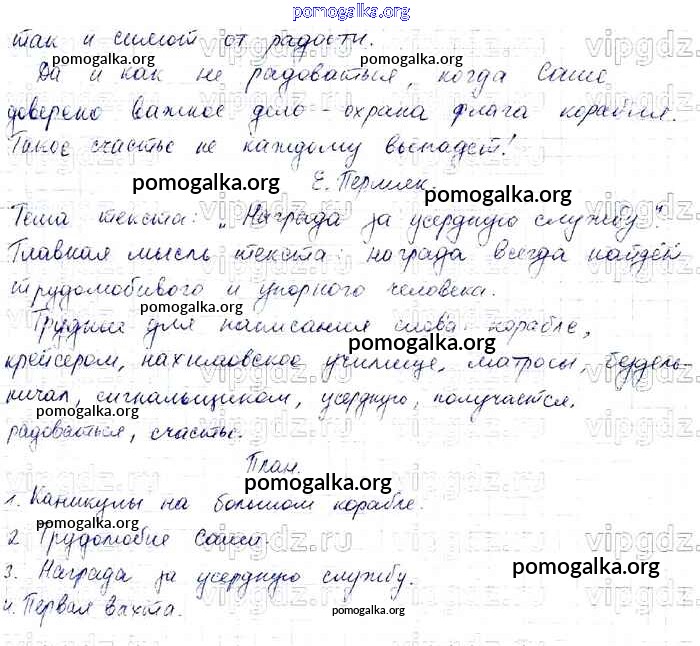 pomogalka.org
так и сияют от радости.
Да и как не радоваться, когда Саше
доверено важное дело - охрана флага корабля.
Такое счастье не каждому выпадет!
pomogalka.org Е. Пермяк pomogalka.org
Тема текста: „Награда за усердную службу".
Главная мысль текста: награда всегда найдёт
трудолюбивого и упорного человека.
pomogalka.org
Трудные для написания слова: корабле,
pomogalka.org
крейсером, нахимовское училище, матросы, бездель-
ничал, сигнальщиком, усердную, получается,
pomogalka.org
радоваться, счастье.
План.
pomogalka.org
1. Каникулы на большом корабле.
pomogalka.org
2. Трудолюбие Саши.
3. Награда за усердную службу.
pomogalka.org
4. Первая вахта.
pomogalka.org